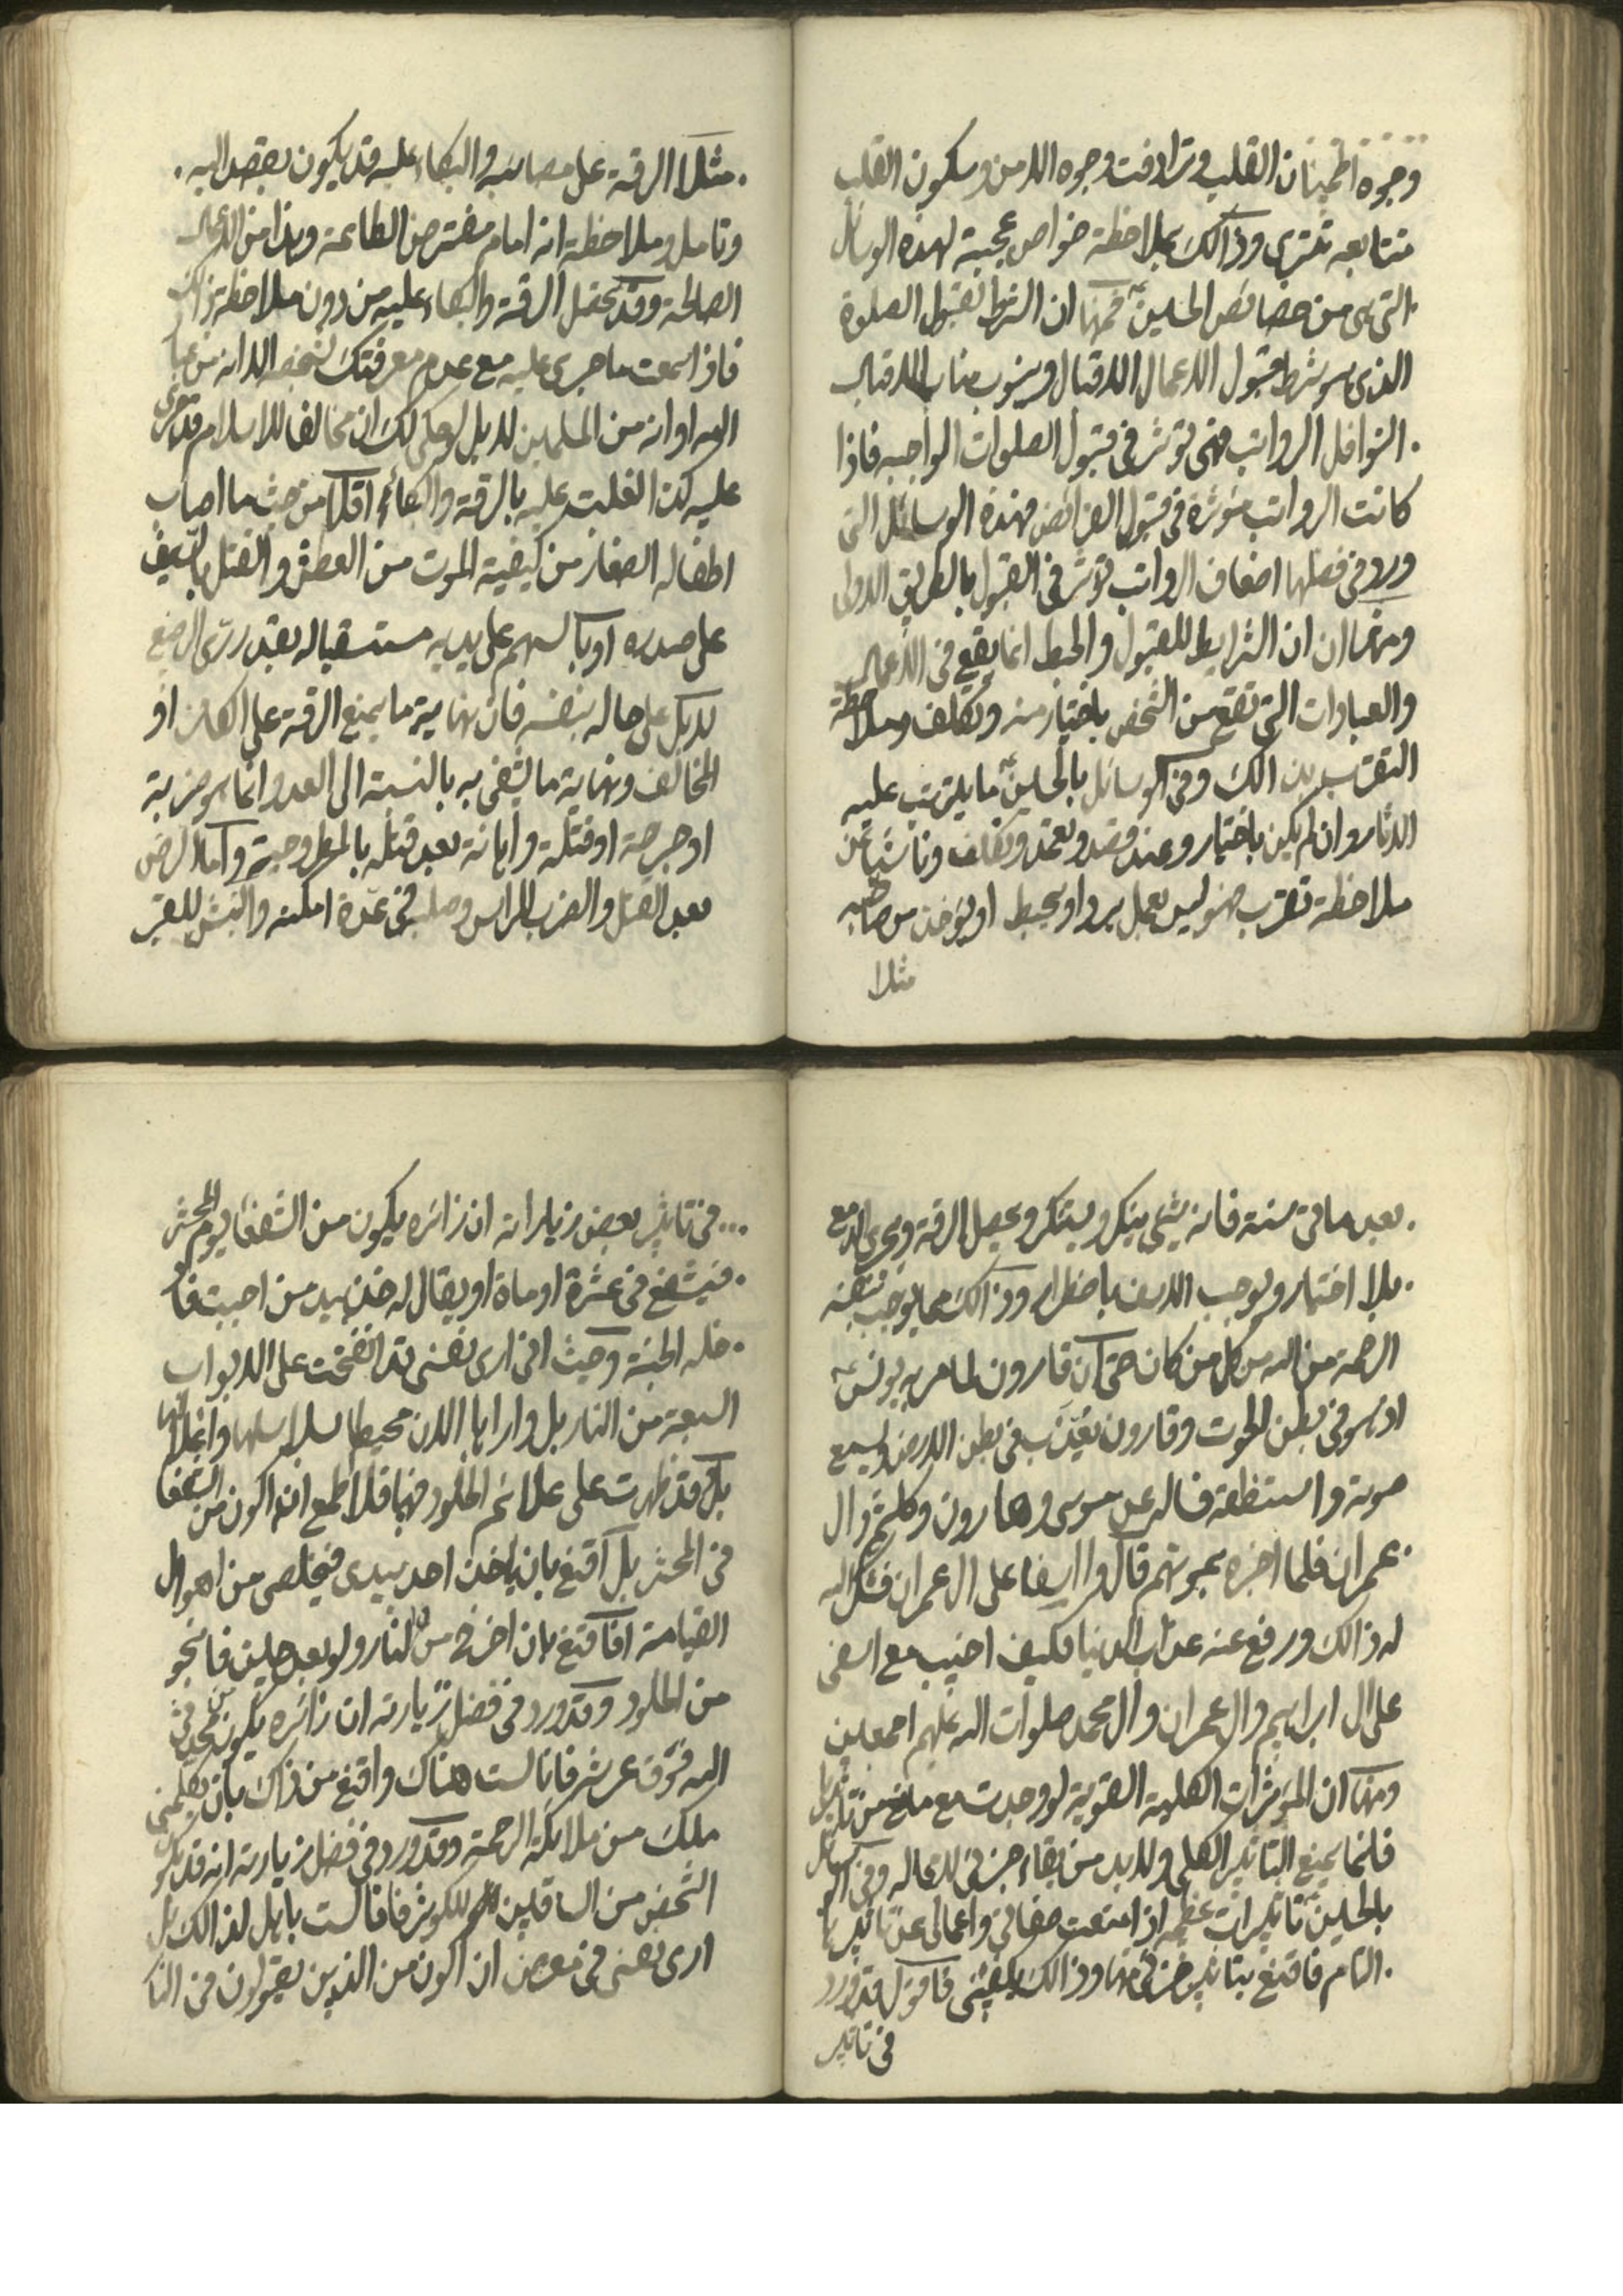 وجوه اطمينان القلب وترادفت وجوه الامن وسكون القلب
متتابعه تترى وذالك بملاحظة خواص عجيبة لهذه الوسائل
التى هى من خصائص الحسين فمنها ان الشرط لقبول الصلوة
الذى هو شرط قبول الاعمال الاقبال وينوب مناب الاقبال
النوافل الرواتب فهى تؤثر فى قبول الصلوات الواجبه فاذا
كانت الرواتب مؤثرة فى قبول الفرائض فهذه الوسائل التى
ورد فى فضلها اضعاف الرواتب تؤثر فى القبول بالطريق الاولى
ومنها ان ان الشرايط للقبول والحبط انما يقع فى الاعمال
والعبادات التى تقع من الشخص باختيار منه وتكلف وملاحظة
التقرب بذالك وفى الوسائل بالحسين ما يترتب عليه
الاثار وان لم يكن باختيار وعند قصد وتعمد وتكلف وناشيا عن
ملاحظة تقرب فهو ليس بعمل يرد او يحبط او يؤخذ من صاحبه
مثلا
مثلا الرقة على مصائبه والبكاء عليه قد يكون بقصد اليه
وتامل وملاحظة انه امام مفترض الطاعة وهذا من الاعمال
الصالحة وقد تحصل الرقة والبكاء عليه من دون ملاحظة ذالك
فاذا سمعت ما جرى عليه مع عدم معرفتك لشخصه الا انه من عباد
الله او انه من المسلمين لا بل لو حكى لك ان مخالفا للاسلام قد جرى
عليه كذا لغلبت عليه بالرقة والبكاء اقلا من حيث ما اصاب
اطفاله الصغار من كيفية الموت من العطش والقتل بالسيف
على صدره او بالسهم على يديه مستسقيا له بقدر رى الرضيع
لا بل على حاله بنفسه فان نهاية ما يمنع الرقة على الكافر او
المخالف ونهاية ما يشفى به بالنسبة الى العدو انما هو ضربة
او جرحة او قتلة واهانة بعد قتله بالمطروحية واما الرض
بعد القتل والضرب للراس وصلبه فى عدة امكنة والنبش للقبر
بعد مائة سنة فانه شئ ينكر ويستنكر ويحصل الرقة ويجرى الدمع
بلا اختيار ويوجب الاسف باضطرار وذالك مما يوجب بنفسه
الرحمة من الله من كل من كان حتى ان قارون لما مر به يونس
اذ هو فى بطن الحوت وقارون يعذب فى بطن الارض وليسمع
صوته واستنطقه فساله عن موسى وهارون وكلثم وال
عمران فلما اخبره بموتهم قال وا اسفا على ال عمران فشكر الله
له ذالك ورفع عنه عذاب الدنيا فكيف اخيب مع اسفى
على ال ابراهيم وال عمران وال محمد صلوات الله عليهم اجمعين
ومنها ان المؤثرات الكلية القوية لو وجدت مع مانع من تاثيرها
فانما يمنع التاثير الكلى ولا بد من بقاء جزئى لا محاله وفى الوسائل
بالحسين تاثيرات عظيمه اذا منعت صفاتى واعمالى عن تاثيرها
التام فاقنع بتاثير جزئى منها وذالك يكفينى فاقول قد ورد
فى تاثير
فى تاثير بعض زياراته ان زائره يكون من الشفعاء يوم المحشر
فيشفع فى عشرة او ماة او يقال له خذ بيد من احببت فاد
خله الجنة وحيث انى ارى نفسى قد انفتحت على الابواب
السبعة من النار بل وارا بها الان محيطا سلاسلها واغلالها
بل قد ظهرت على علائم الخلود فيها فلا اطمع انى اكون من الشفعا
فى المحشر بل اقنع بان ياخذ احد بيدى فيخلصى من اهوال
القيامة اقا قنع بان اخرج من النار ولو بعد حين فانجو
من الخلود وقد ورد فى فضل زيارته ان زائره يكون من محدثى
الله فوق عرشه فانا لست هناك واقنع من ذاك بان يكلمنى
ملك من ملائكة الرحمة وقد ورد فى فضل زيارته انه قد يكون
الشخص من الساقين للكوثر فانا لست باهل لذالك بل
ارى نفسى فى معرض ان اكون من الذين يقولون فى النار